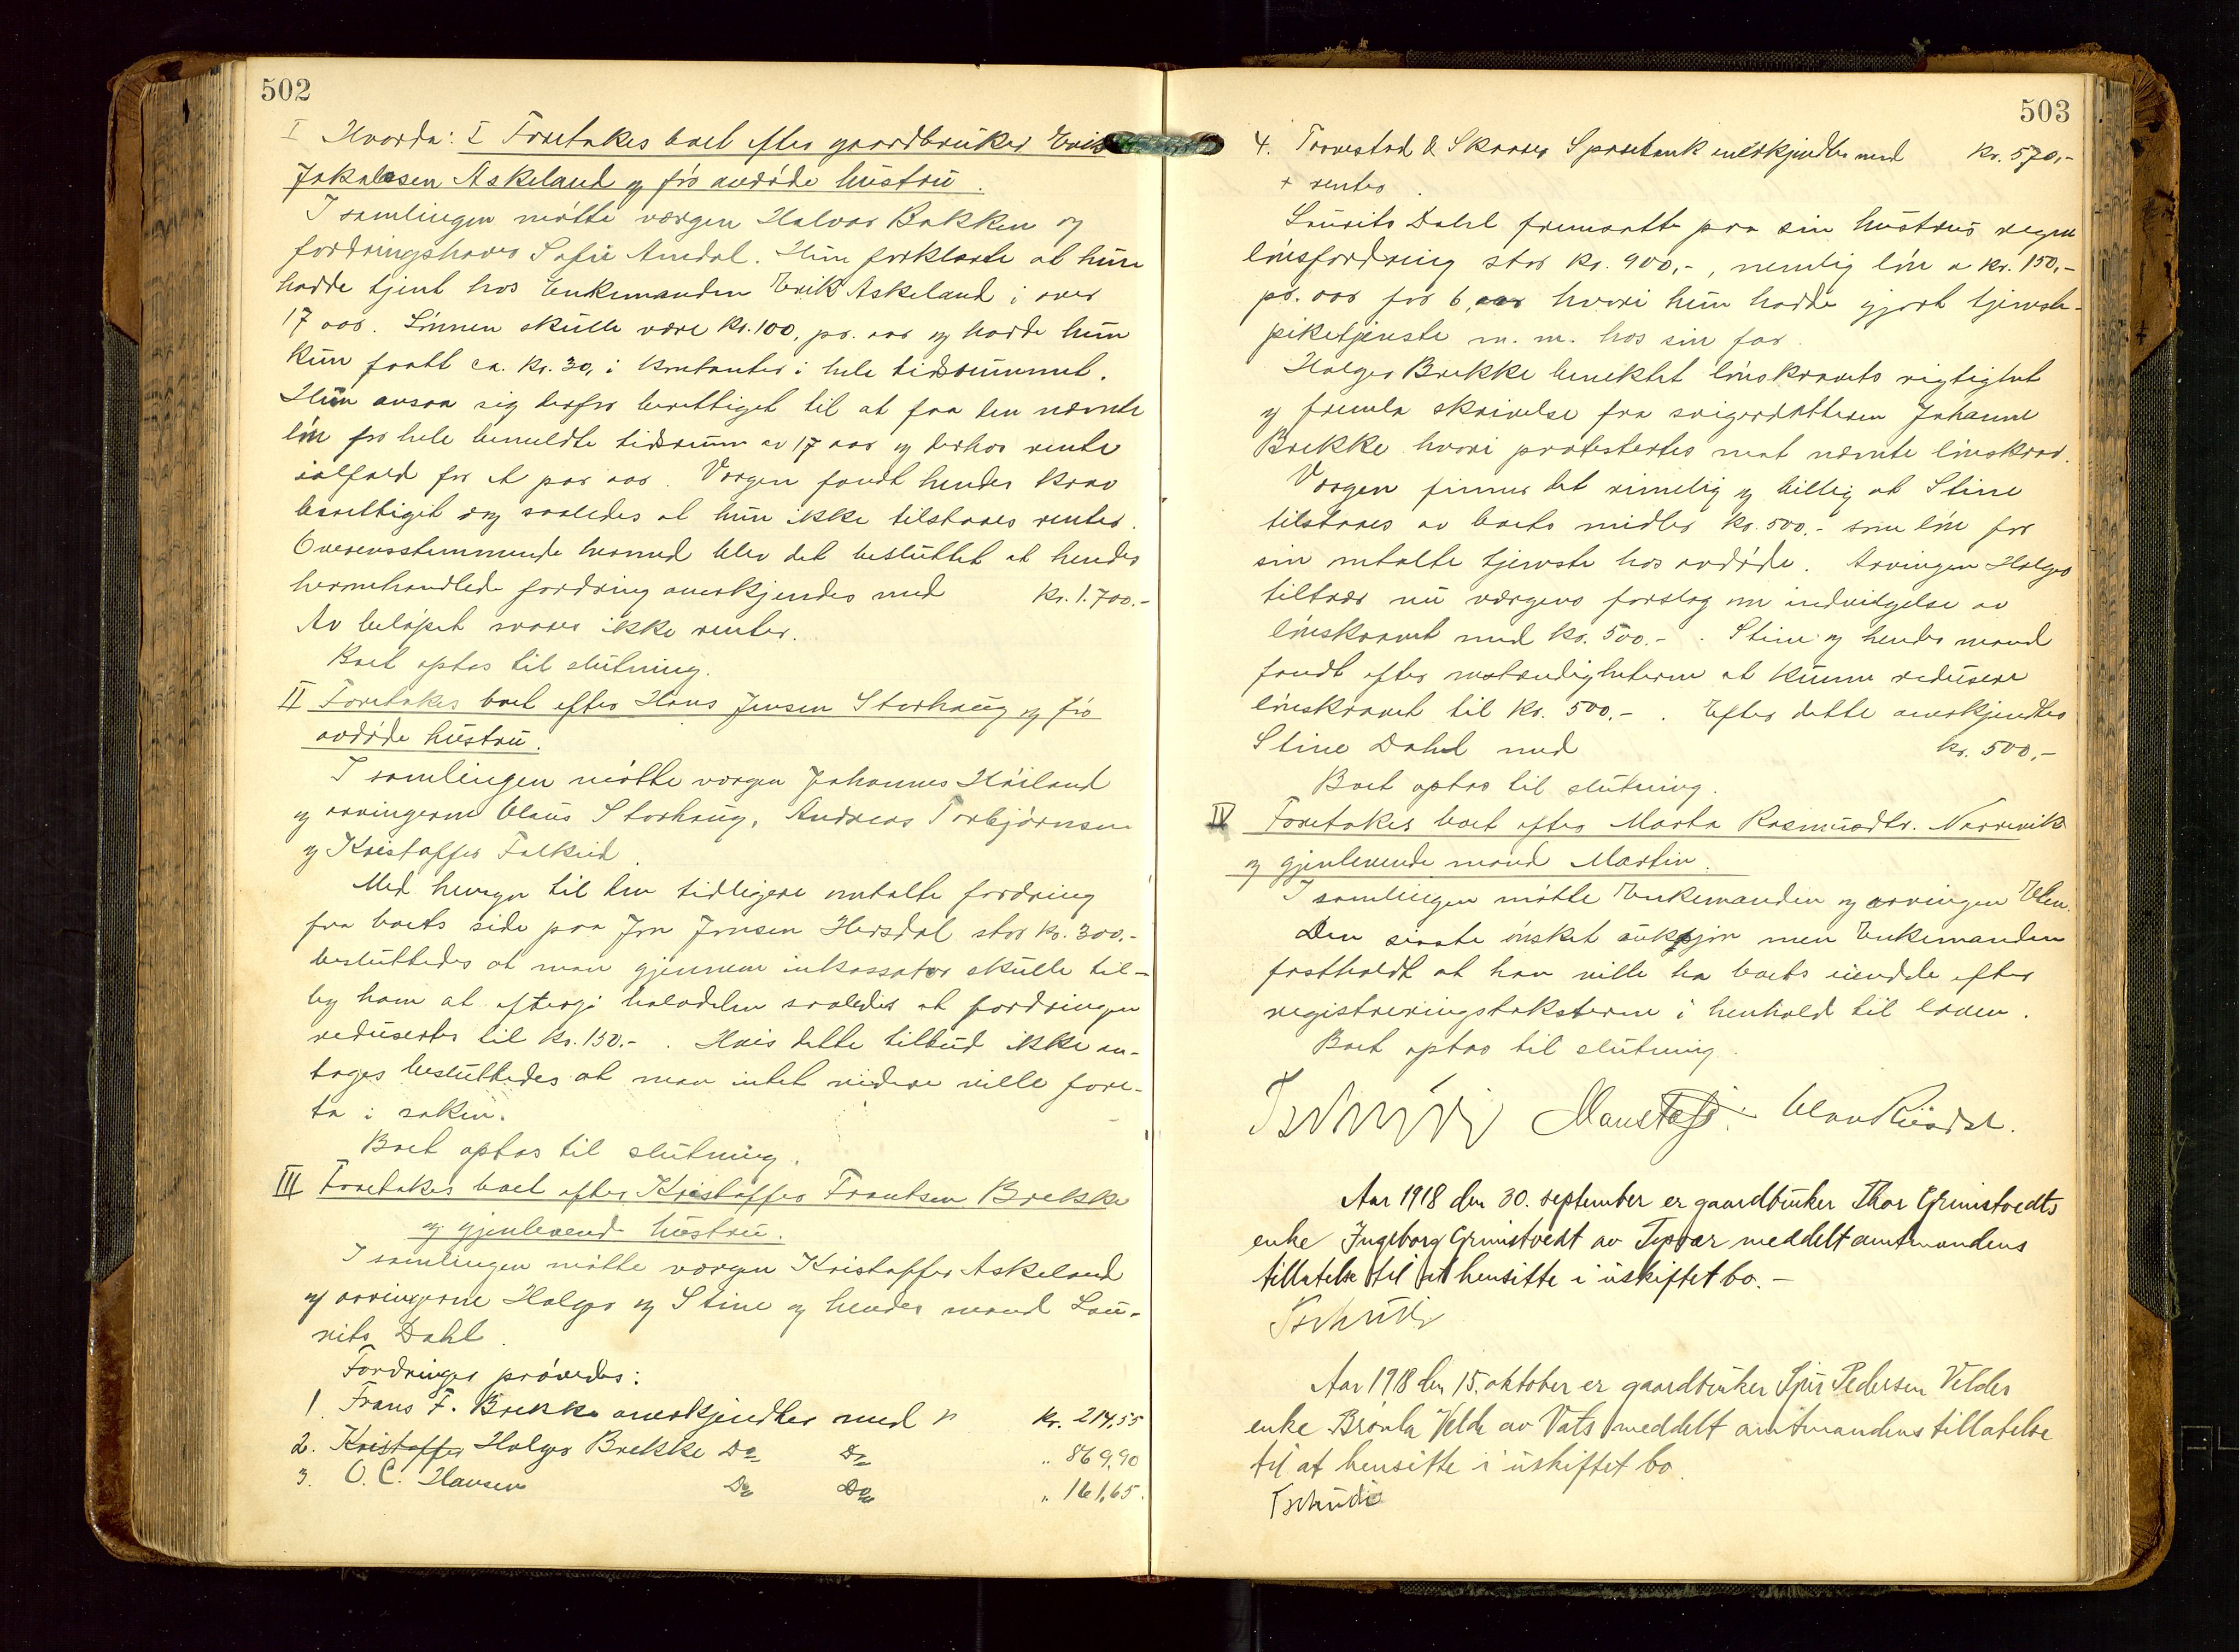 502
I Hvorda: I Foretakes boet efter gaardbruker Erik
Jakobsen Askeland og før avdøde hustru.
I samlingen møtte værgen Halvor Bakken og
fordringshaver Sofie Amdal. Hun forklarte at hun
hadde tjent hos Enkemanden Erik Askeland i over
17 aar. Lønnen skulle være kr. 100, pr. aar og hadde hun
kun faatt ca. kr. 30, i kontanter i hele tidsrummet.
Hun ansaa sig derfor berettiget til at faa den nævnte
løn for hele bemeldte tidsrum av 17 aar og derhos rente
ialfald for et par aar. Værgen fandt hendes krav
berettiget dog saaledes at hun ikke tilstaaes renter.
Overensstemmende hermed blev det besluttet at hendes
heromhandlede fordring anerkjendes med kr. 1.700.-
Av beløpet svares ikke renter.
Boet optas til slutning.
II Foretakes boet efter Hans Jensen Storhaug og før
avdøde hustru.
I samlingen møtte værgen Johannes Høiland
og arvingerne Claus Storhaug, Andreas Torbjørnsen
og Kristoffer Falkeid.
Med hensyn til den tidligere omtalte fordring
fra boets side paa Jon Jonsen Hersdal stor kr. 300.-
besluttedes at man gjennem inkassator skulle til-
by ham at eftergi halvdelen saaledes at fordringen
redusertes til kr. 150.- . Hvis dette tilbud ikke an-
tages besluttedes at man intet videre ville fore-
ta i saken.
Boet optas til slutning.
III Foretakes boet efter Kristoffer Frantsen Brekke
og gjenlevende hustru.
I samlingen møtte værgen Kristoffer Askeland
og arvingerne Holger og Stine og hendes mand Lau-
rits Dahl.
Fordringer prøvedes:
1. Frans F. Brekke anerkjendtes med kr. 214,55
2. Kristoffer Holger Brekke Do Do " 869,90
3. O. C. Hansen Do Do " 161,65.
503
4. Torvestad & Skaares Sparebank anerkjendtes med kr. 570,-
+ renter.
Laurits Dahl fremsatte paa sin hustrus vegne
lønsfordring stor kr. 900,- , nemlig løn a kr. 150,-
pr. aar for 6 aar hvori hun hadde gjort tjeneste-
piketjeneste m. m. hos sin far.
Holger Brekke benektet lønskravets rigtighet
og fremla skrivelse fra svigerdatteren Johanne
Brekke hvori protestertes mot nævnte lønskrav.
Værgen finner det rimelig og billig at Stine
tilstaaes av boets midler kr. 500.- som løn for
sin omtalte tjeneste hos avdøde. Arvingen Holger
tiltrær nu værgens forslag om indvilgelse av
lønskravet med kr. 500.- . Stine og hendes mand
fandt efter omstændigheterne at kunne redusere
lønskravet til kr. 500.- . Efter dette anerkjendtes
Stine Dahl med kr. 500,-
Boet optas til slutning.
IV Foretakes boet efter Marta Rasmusdtr. Norrevik
og gjenlevende mand Martin.
I samlingen møtte Enkemanden og arvingen Elen.
Den sidste ønsket auksjon men Enkemanden
fastholdt at han ville ha boets eiendele efter
registreringstaksterne i henhold til loven.
Boet optas til slutning.
Tschudi
Aar 1918 den 30. september er gaardbruker Thor Grimstvedts
enke Ingeborg Grimstvedt av Tysvær meddelt amtmandens
tillatelse til at hensitte i uskiftet bo. -
Tschudi
Aar 1918 den 15. oktober er gaardbruker Sjur Pedersen Veldes
enke Brønla Velde av Vats meddelt amtmandens tillatelse
til at hensitte i uskiftet bo.
Tschudi